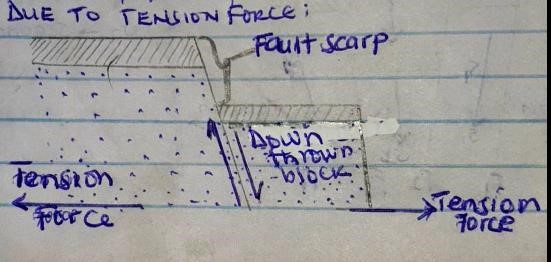 DUE TO TENSION FORCE:
Fault scarp
Down
thrown
block
Tension
Force
Tension
Force